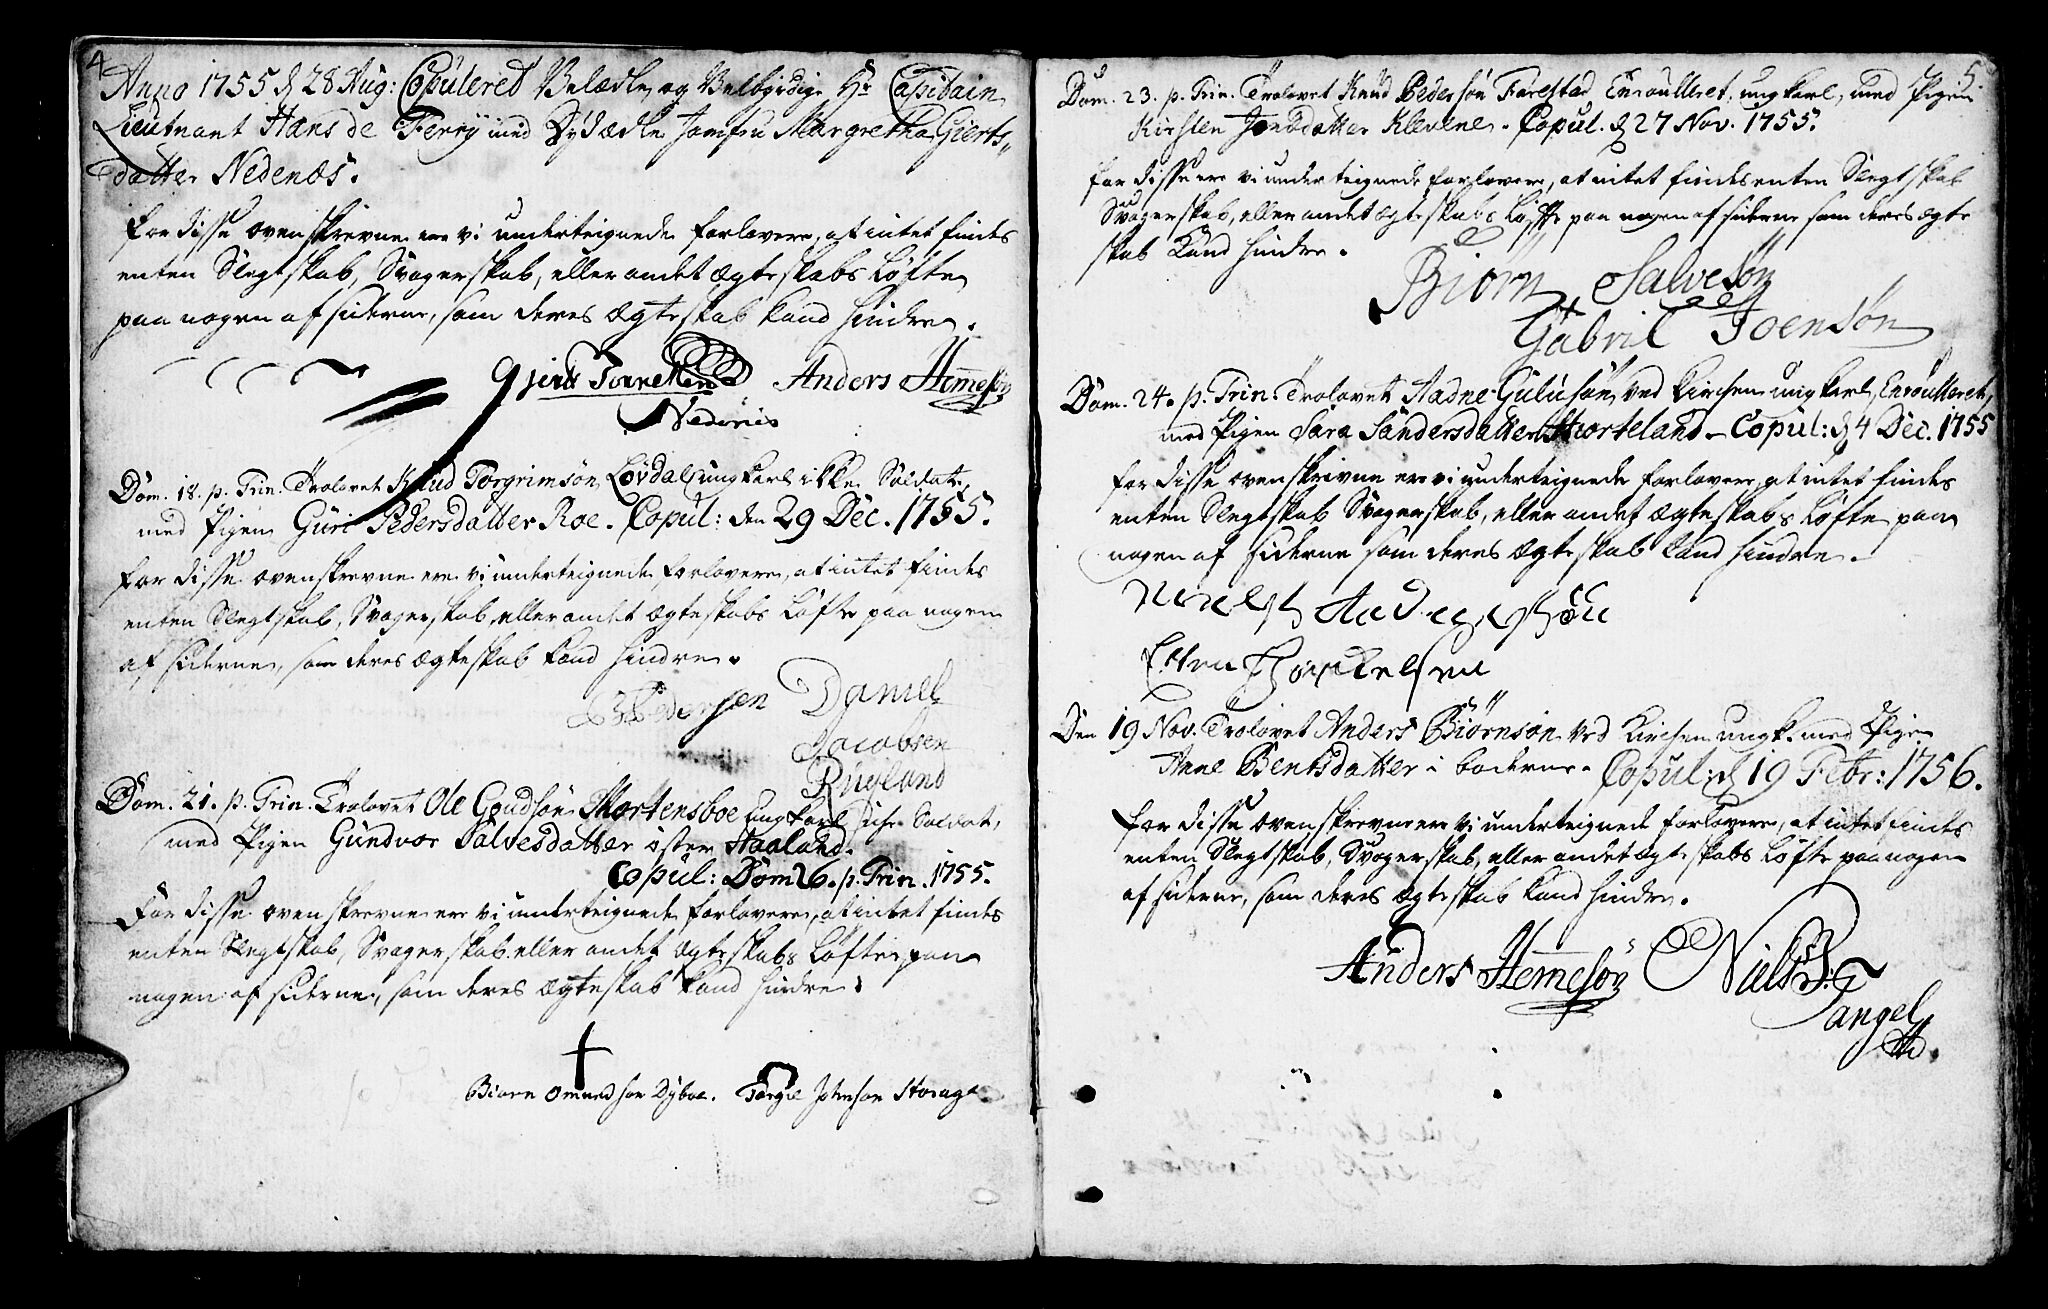 4
Anno 1755 d 28 Aug: Copuleret Velædle og Velbyrdige Hr Capitain
Lieutnant Hans de Ferry med Dydædle Jomfru Margretha Gierts-
datter Nedenæs.
for disse ovenskrevne ere vi underteignede forlovere, at intet findes
enten Slegtskab, Svogerskab, eller andet Ægteskabs Løfte
paa nogen af siderne, som deres Ægteskab kand hindre.
Gjert Anders Hemesøn
Nedenes
Dom. 18. p. Trin. Trolovet Knud Torgrimsøn Løvdal ungkarl ikke Soldat,
med Pigen Guri Pedersdatter Roe. Copul: den 29 Dec. 1755.
for disse ovenskrevne ere vi underteignede forlovere, at intet findes
enten Slegtskab, Svogerskab, eller andet ægteskabs Løfte paa nogen
af siderne, som deres ægteskab kand hindre.
Pedersen Daniel
Jacobsen
Rugland
Dom. 21. p. Trin. Trolovet Ole Gundsøn Mortensboe ungkarl Soldat,
med Pigen Gundvor Salvesdatter øster Haaland.
Copul: Dom 26. p. Trin. 1755.
for disse ovenskrevne ere vi underteignede forlovere, at intet findes
enten Slegtskab, Svogerskab eller andet Ægteskabs Løfte paa
nogen af siderne, som deres Ægteskab kand hindre.
Biørn Omundsøn Dyboe. Torgie Johnsøn
5
Dom. 23. p. Trin. Trolovet Knud Pedersøn Farestad Enroulleret, ungkarl, med Pigen
Kirsten Jensdatter Klevene. Copul. d 27 Nov. 1755.
for disse ere vi underteignede forlovere, at intet findes enten Slegtskab
Svogerskab, eller andet ægteskabs Løfte paa nogen af siderne som deres ægte
skab kand hindre.
Biørn Salvesøn
Gabril Joensøn
Dom. 24. p. Trin. Trolovet Aadne Gulusøn ved Kirchen ungkarl, Enroulleret,
med Pigen Sara Sandersdatter Hiorteland. Copul: d 4 Dec. 1755
for disse ovenskrevne ere vi underteignede forlovere, at intet findes
enten Slegtskab Svogerskab, eller andet Ægteskabs Løfte paa
nogen af siderne som deres Ægteskab kand hindre.
Den 19 Nov. Trolovet Anders Biørnsøn ved Kirchen ungk. med Pigen
Anne Bentsdatter i boderne. Copul: d 19 Febr: 1756.
for disse ovenskrevne ere vi underteignede forlovere, at intet findes
enten Slegtskab, Svogerskab, eller andet ægteskabs Løfte paa nogen
af siderne, som deres ægteskab kand hindre.
Anders Hemesøn Niels
Tangel